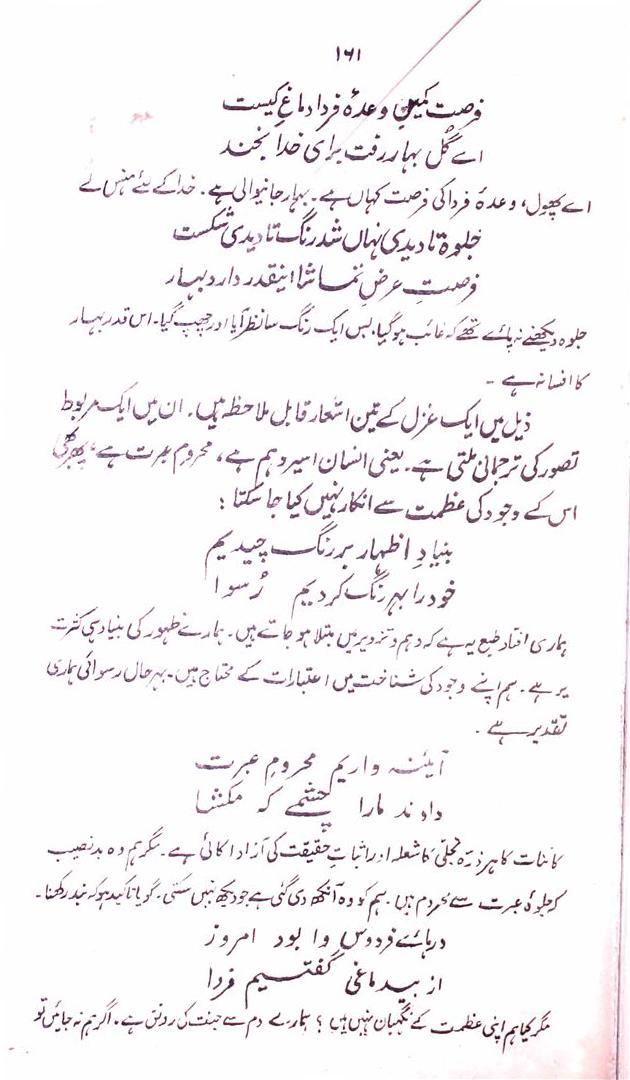 ۱۶۱
فرصت کمین وعدۂ فردا دماغِ کیست
اے گُل بہار رفت برای خدا بخند
اے پھول، وعدۂ فردا کی فرصت کہاں ہے۔ بہار جانیوالی ہے۔ خدا کے لئے ہنس لے
جلوہ تا دیدی نہاں شد رنگ تا دیدی شکست
فرصتِ عرضِ تماشا اینقدر دارد بہار
جلوہ دیکھنے نہ پائے تھے کہ غائب ہوگیا، بس ایک رنگ سا نظر آیا اور چھپ گیا۔ اس قدر بہار
کا افسانہ ہے ۔
ذیل میں ایک غزل کے تین اشعار قابل ملاحظہ ہیں۔ ان میں ایک مربوط
تصور کی ترجمانی ملتی ہے۔ یعنی انسان اسیر وہم ہے، محروم عبرت ہے، پھر بھی
اس کے وجود کی عظمت سے انکار نہیں کیا جا سکتا :
بنیادِ اظہار بر رنگ چیدیم
خود را بہر رنگ کردیم رُسوا
ہماری افتاد طبع یہ ہے کہ وہم و تزویر میں مبتلا ہو جاتے ہیں۔ ہمارے ظہور کی بنیاد ہی کثرت
پر ہے۔ ہم اپنے وجود کی شناخت میں اعتبارات کے محتاج ہیں۔ بہرحال رسوائی ہماری
تقدیر ہے ۔
آئنہ واریم محرومِ عبرت
دادند مارا چشمے کہ مکشا
کائنات کا ہر ذرّہ تجلّی کا شعلہ اور اثباتِ حقیقت کی آزاد اکائی ہے۔ مگر ہم وہ بدنصیب
کہ جلوۂ عبرت سے محروم ہیں۔ ہم کو وہ آنکھ دی گئی ہے جو دیکھ نہیں سکتی۔ گویا تاکید ہو کہ بند رکھنا۔
درہائے فردوس وا بود امروز
از بیدماغی گفتیم فردا
مگر کیا ہم اپنی عظمت کے نگہبان نہیں ہیں؟ ہمارے دم سے جنت کی رونق ہے۔ اگر ہم نہ جائیں تو